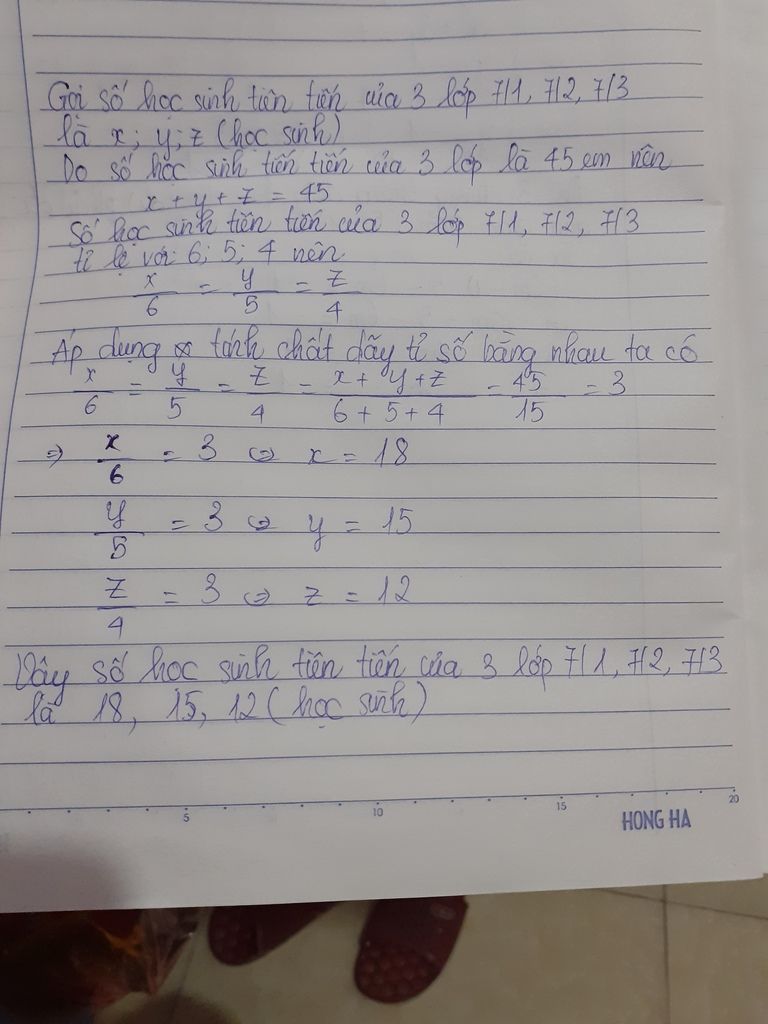 Gọi số học sinh tiên tiến của 3 lớp 7/1, 7/2, 7/3
là x; y; z (học sinh)
Do số học sinh tiến tiến của 3 lớp là 45 em nên
x + y + z = 45
Số học sinh tiên tiến của 3 lớp 7/1, 7/2, 7/3
tỉ lệ với 6; 5; 4 nên
x/6 = y/5 = z/4
Áp dụng tính chất dãy tỉ số bằng nhau ta có
x/6 = y/5 = z/4 = x + y + z/6 + 5 + 4 = 45/15 = 3
⇒ x/6 = 3 ⇔ x = 18
y/5 = 3 ⇔ y = 15
z/4 = 3 ⇔ z = 12
Vậy số học sinh tiên tiến của 3 lớp 7/1, 7/2, 7/3
là 18, 15, 12 (học sinh)
5 10 15 20
HONG HA